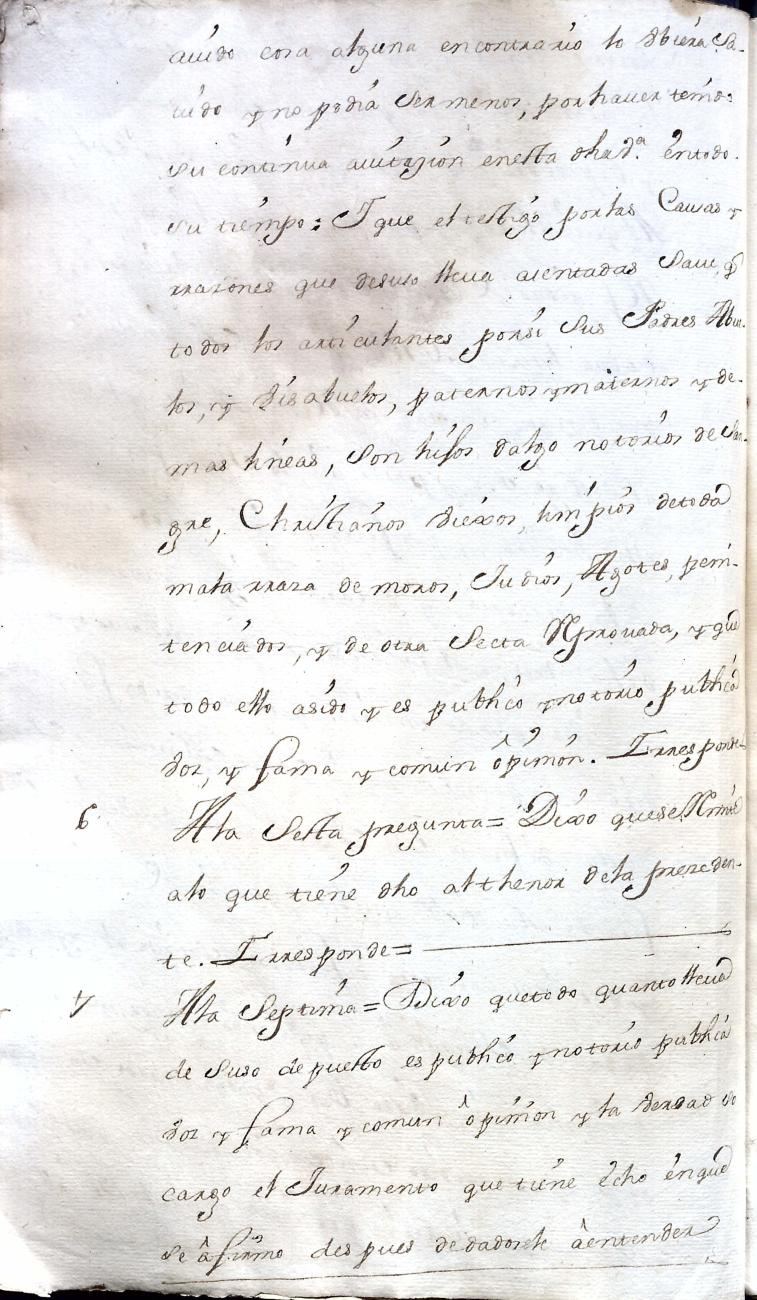 auido cosa alguna encontrario lo dbiera Sa-
uido y no podia Ser menos, por hauer tenido
su continua auitazion enesta dha va. entodo
su tiempo: I que el testigo por las Causas y
rrazones que desuso lleua asentadas Saue, q̃
todos los articulantes porsi Sus Padres Abue-
los, y visabuelos, paternos y maternos y de-
mas lineas, Son hijos dalgo notorios de San-
gre, Christianos viexos, limpios detoda
mala rraza de moros, Judios, Agotes, peni-
tenciados, y de otra Secta Reprouada, y que
todo ello asido y es publico y notorio publica
voz, y fama y comun opinion. Irresponde
6 Ala Sesta pregunta= Dixo quese Remite
alo que tiene dho althenor dela preceden-
te. Irresponde=
7 Ala Septima= Dixo quetodo quanto lleua
de Suso depuesto es publico y notorio publica
voz y fama y comun opinion y la verdad so
cargo el Juramento que tiene echo enque
se afirmo despues de dadosele a entender